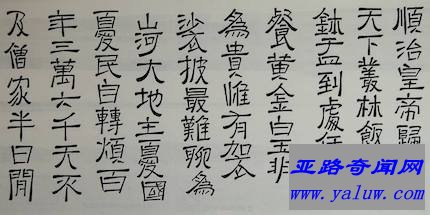 順治皇帝歸
天下叢林飯
鉢盂到處任
餐黃金白玉非
為貴惟有袈
裟披最難朕為
山河大地主憂國
憂民自轉煩百
年三萬六千天不
及僧家半日閒
亚路奇闻网
www.yaluw.com